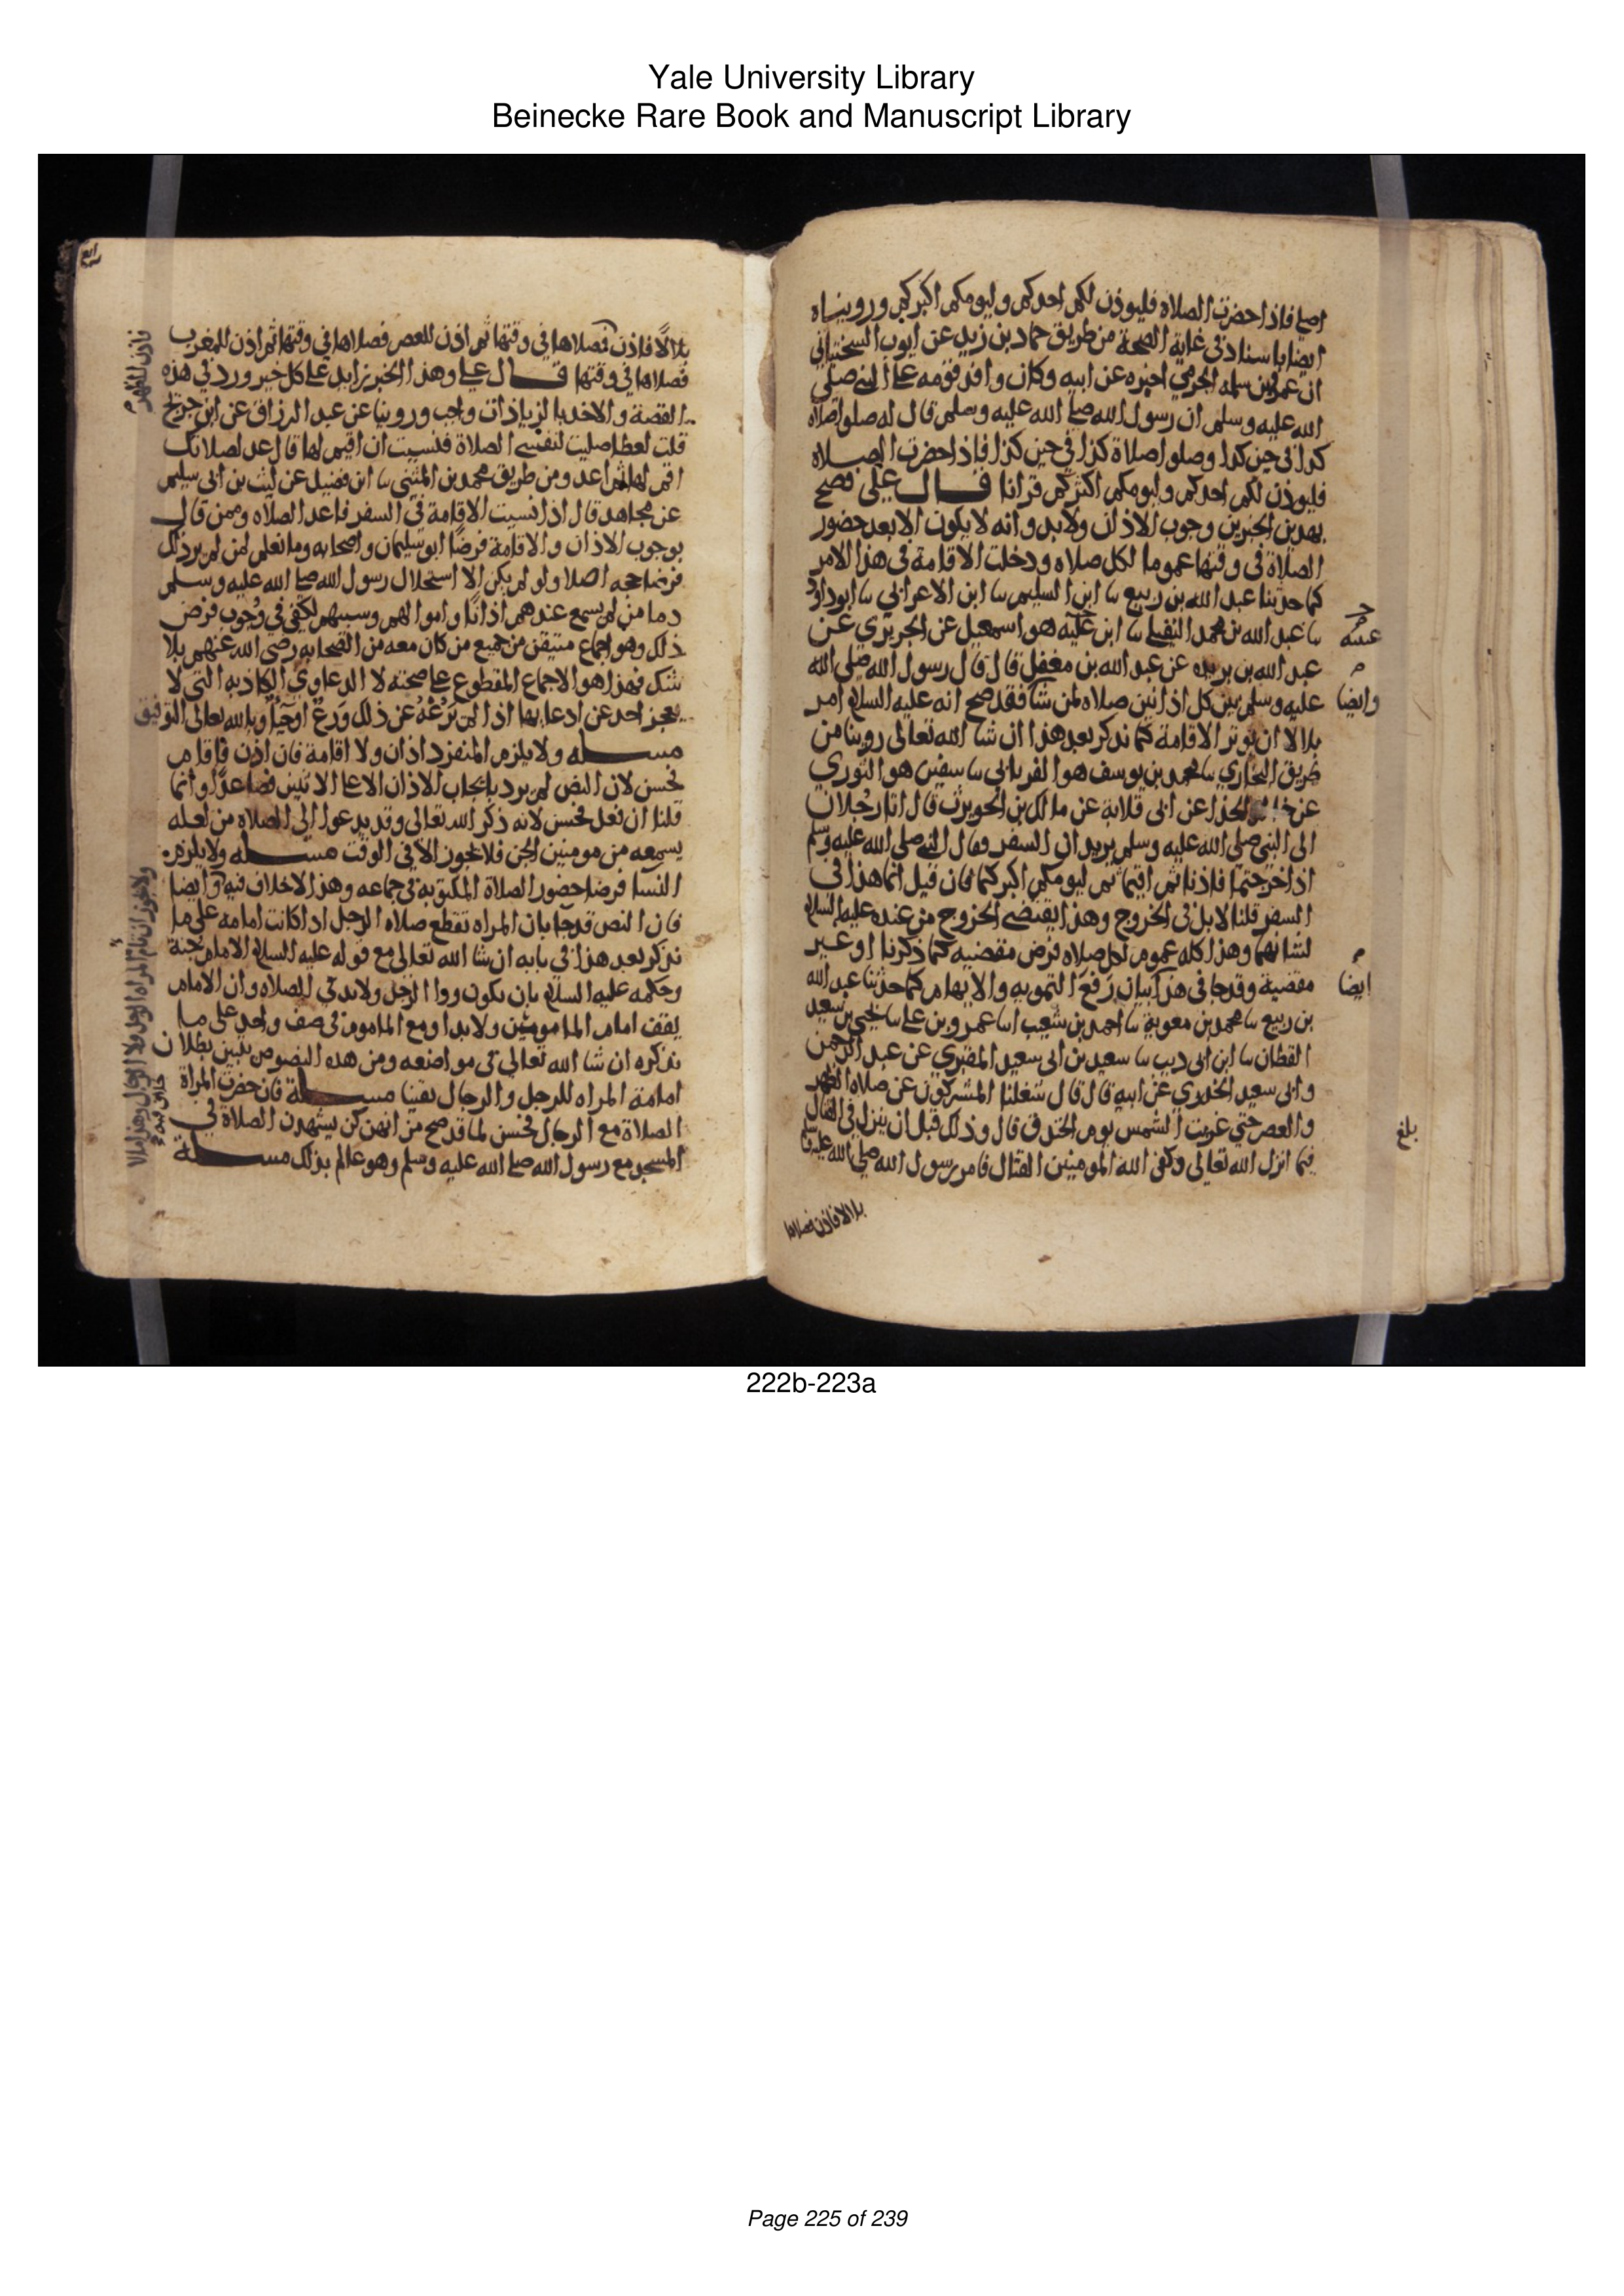 Yale University Library
Beinecke Rare Book and Manuscript Library
اصلي فاذا حضرت الصلاه فليوذن لكم احدكم وليومكم اكبركم ورويناه
ايضا باسناد في غاية الصحة من طريق حماد بن زيد عن ايوب السختياني
ان عمرو بن سلمه الجرمي اخبره عن ابيه وكان وافد قومه على النبي صلى
الله عليه وسلم ان رسول الله صلى الله عليه وسلم قال له صلوا صلاه
كذا في حين كذا وصلوا صلاة كذا في حين كذا فاذا حضرت الصلاه
فليوذن لكم احدكم وليومكم اكثركم قرانا قال علي فصح
بهذين الخبرين وجوب الاذان ولابد وانه لا يكون الا بعد حضور
الصلاة في وقتها عموما لكل صلاه ودخلت الاقامة في هذا الامر
كما حدثنا عبد الله بن ربيع نا ابن السليم نا ابن الاعرابي نا ابو داود
نا عبد الله بن محمد النفيلي نا ابن عليه هو اسمعيل عن الجريري عن
عبد الله بن بريده عن عبد الله بن مغفل قال قال رسول الله صلى الله
عليه وسلم بين كل اذانين صلاه لمن شا فقد صح انه عليه السلم امر
وايضا
بلالا ان يوتر الاقامة كما نذكر بعد هذا ان شا الله تعالى روينا من
طريق البخاري نا محمد بن يوسف هو الفريابي نا سفين هو الثوري
عن خالد الحذا عن ابي قلابة عن مالك بن الحويرث قال اتا رجلان
الى النبي صلى الله عليه وسلم يريدان السفر فقال النبي صلى الله عليه وسلم
اذا خرجتما فاذنا ثم اقيما ثم ليومكما اكبركما فان قيل انما هذا في
السفر قلنا لا بل في الخروج وهذا يقتضي الخروج من عنده عليه السلم
لشانهما وهذا كله عموم لكل صلاه فرض مقضيه كما ذكرنا او غير
مقضية وقد جا في هذا بيان رفع التمويه والايهام كما حدثنا عبد الله
ايضا
بن ربيع نا محمد بن معوية نا احمد بن شعيب انا عمرو بن علي نا يحيى بن سعيد
القطان نا ابن ابي ديب نا سعيد بن ابي سعيد المقبري عن عبد الرحمن
وابي سعيد الخدري عن ابيه قال قال شغلنا المشركون عن صلاه الظهر
والعصر حتي غربت الشمس يوم الخندق قال وذلك قبل ان ينزل في القتال
بلغ
فيما انزل الله تعالى وكفى الله المومنين القتال فامر رسول الله صلى الله عليه وسلم
بلالا فاذن فصلاها
بلالًا فاذن فصلاها في وقتها ثم اذن للعصر فصلاها في وقتها ثم اذن للمغرب
فاذن للظهر
فصلاها في وقتها قال علي وهذا الخبر زايد على كل خبر ورد في هذه
القصة والاخذ بالزيادات واجب وروينا عن عبد الرزاق عن ابن جريج
قلت لعطا صليت لنفسي الصلاة فنسيت ان اقيم لها قال عد لصلاتك
اقم لها ثم اعد ومن طريق محمد بن المثني نا ابن فضيل عن ليث بن ابي سليم
عن مجاهد قال اذا نسيت الاقامة في السفر فاعد الصلاه وممن قال
بوجوب الاذان والاقامة فرضًا ابو سليمان واصحابه وما نعلم لمن لم ير ذلك
فرضا حجه اصلا ولو لم يكن الا استحلال رسول الله صلى الله عليه وسلم
دما من لم يسمع عندهم اذانًا واموالهم وسبيهم لكفى في وجوب فرض
ذلك وهو اجماع متيقن من جميع من كان معه من الصحابه رضي الله عنهم بلا
شك فهذا هو الاجماع المقطوع على صحته لا الدعاوي الكاذبه التي لا
يعجز احد عن ادعايها اذا لم يزعه عن ذلك ورع او حيا وبالله تعالى التوفيق
مسله ولا يلزم المنفرد اذان ولا اقامة فان اذن واقام
فحسن لان النص لم يرد بايجاب الاذان الا على الاثنين فصاعدًا وانما
قلنا ان فعل فحسن لانه ذكر الله تعالى وقد يدعوا الى الصلاه من لعله
يسمعه من مومنين الجن فلا يجوز الا في الوقت مسله ولا يلزم
النسا فرضا حضور الصلاة المكتوبه في جماعه وهذا لا خلاف فيه وايضا
فان النص قد جا بان المراه تقطع صلاه الرجل اذا كانت امامه على ما
نذكر بعد هذا في بابه ان شا الله تعالى مع قوله عليه السلم الامام جنة
وحكمه عليه السلم بان يكون ورا الرجل ولا بد في الصلاه وان الامام
يقف امام المامومين ولا بد او مع الماموم في صف واحد على ما
نذكره ان شا الله تعالى في مواضعه ومن هذه النصوص يتبين بطلان
امامة المراه للرجل والرجال يقينا مسلة فان حضرت المراة
الصلاة مع الرجال فحسن لما قد صح من انهن كن يشهدن الصلاة في
المسجد مع رسول الله صلى الله عليه وسلم وهو عالم بذلك مسلة
ولا يجوز ان تام المراه الرجل ولا الرجال وهذا ما لا
خلاف فيه
222b-223a
Page 225 of 239